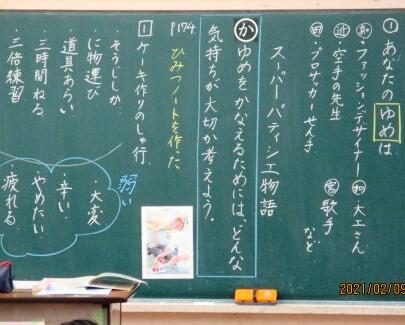 ① あなたのゆめは
㊗・ファッションデザイナー ㊗・大工さん
㊗・空手の先生 ㊗ 歌手
㊗・プロサッカーせん手 など
スーパーパティシエ物語
か ゆめをかなえるためには、どんな
気持ちが大切か考えよう。
P174
ひみつノートを作った
1 ケーキ作りのしゅ行
・そうじしか
・に物運び
・道具あらい
・三時間ねる
・二倍練習
弱い
・大変
・辛い
・やめたい
・疲れる
2021/02/09